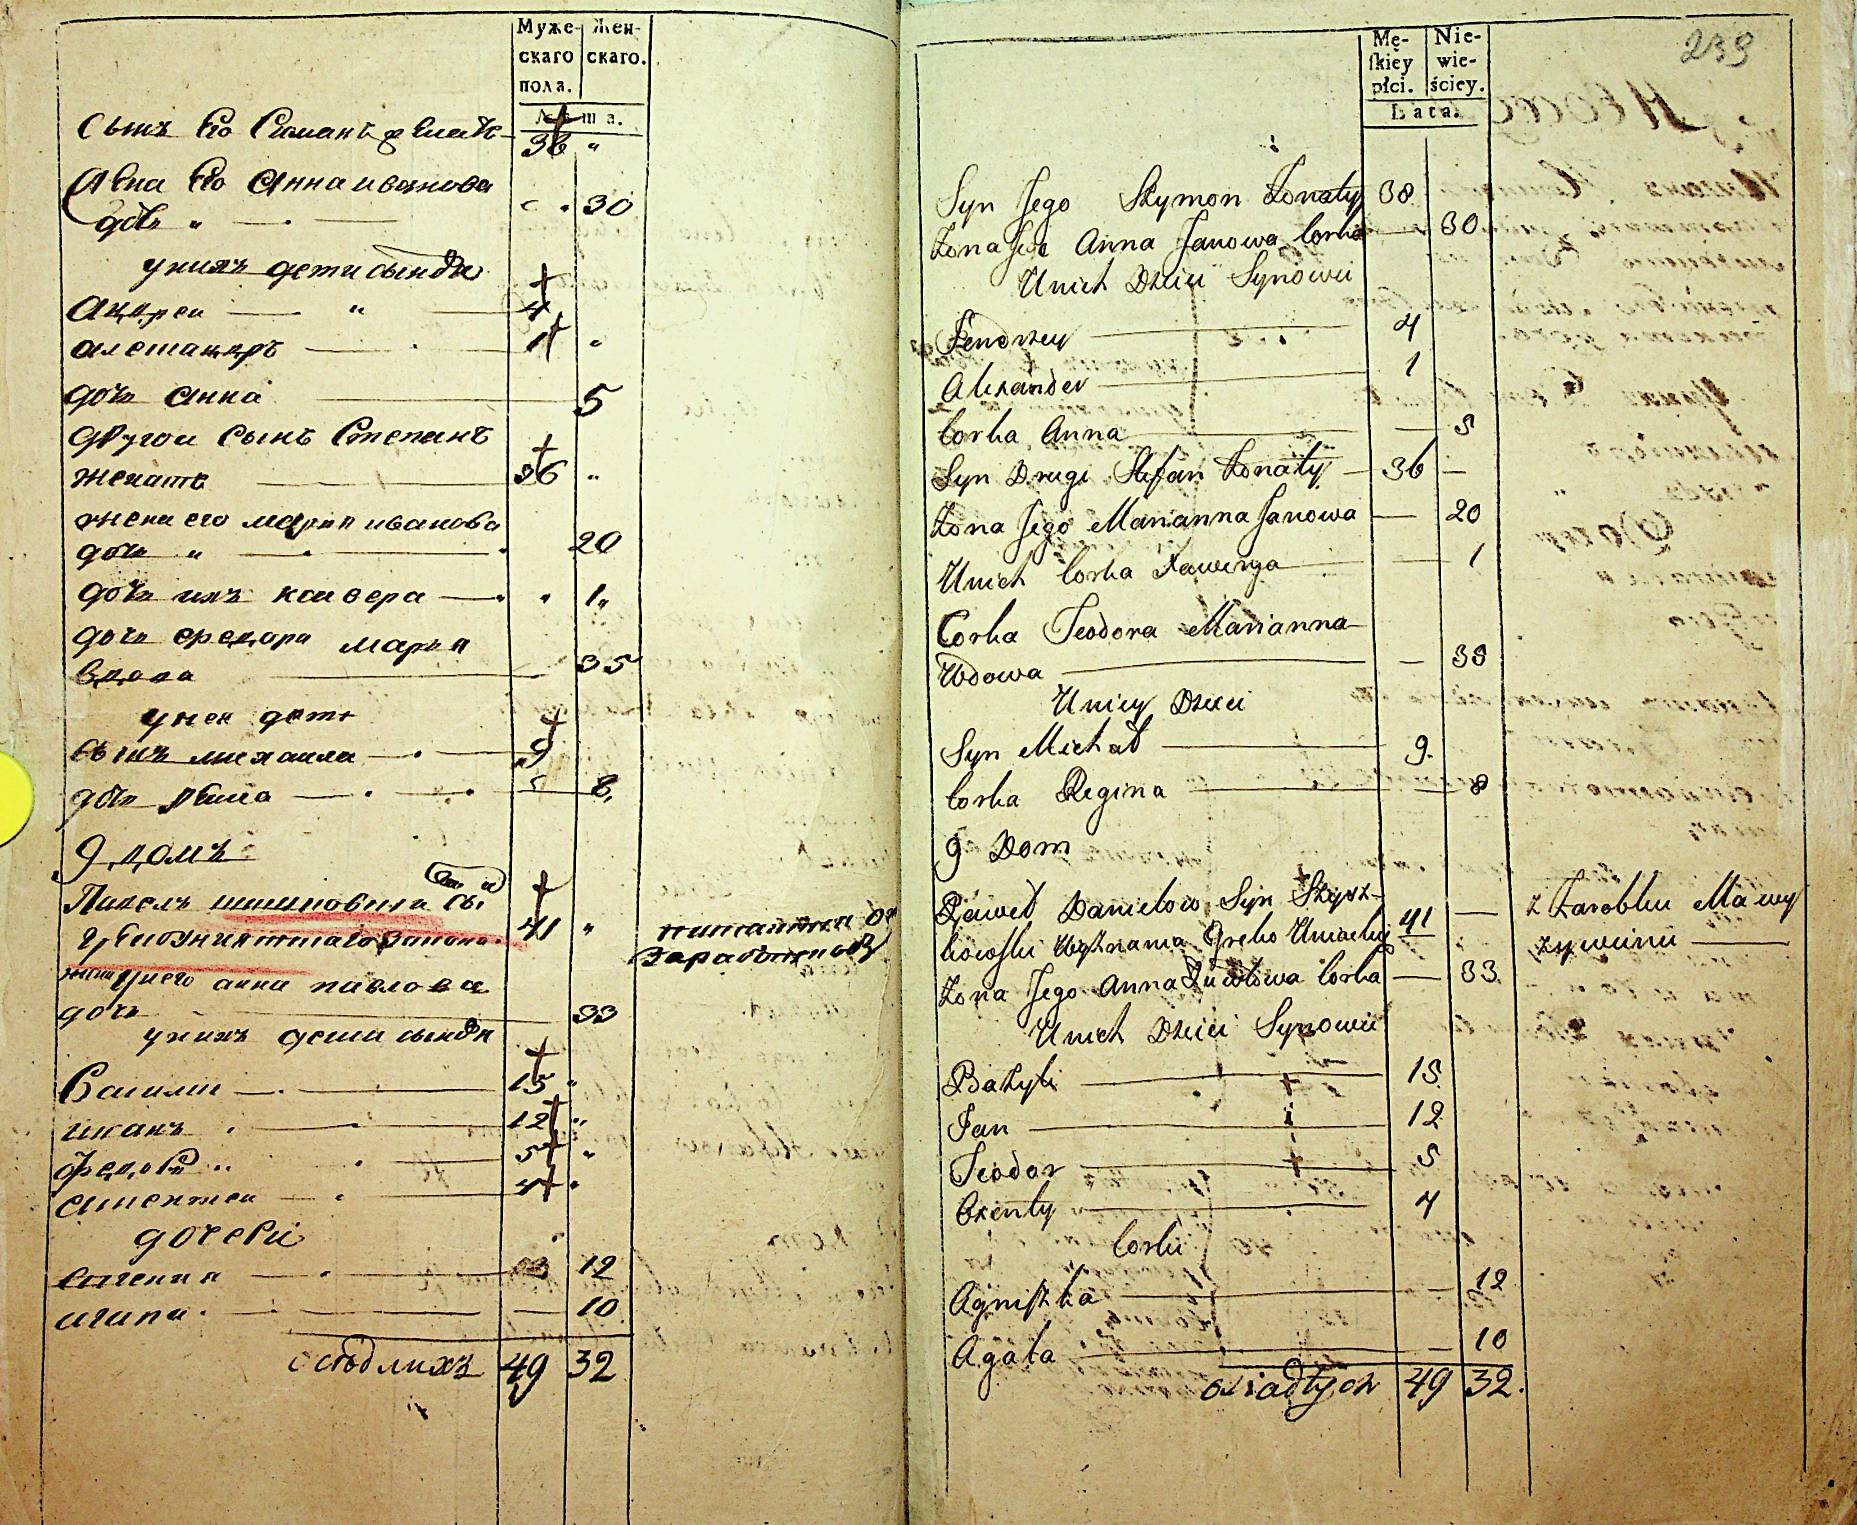 Муже-
скаго
пола.
Жен-
скаго.
Лѣта.
Сынъ Его Симанъ
36 "
Его Анна иванова
дочь " — 30
унихъ дети сыновя
Андреи — " — 4
алешандръ — 1 "
дочь Анна — 5
другои Сынъ Степанъ
женатъ — 36 "
жена его Мария иванова
дочь " — 20
дочь ихъ ксивера — " 1 "
дочь федора марья
вдова — 35
унеи дети
сынъ михаила — 9
дочь — 8
9 домъ
Павелъ сы
41 " питается от
заработковъ
унего анна павлова
дочь — 33
унихъ дети сыновя
Васили — 15 "
иванъ — 12 "
федоръ — 5 "
— 4 "
дочери
— 12
агапа — 10
оседлихъ 49 32
239
Mę-
skiey
płci.
Nie-
wie-
ściey.
Lata.
Syn Jego Szymon Żonaty 38
Żona Jego Anna Janowa Corka — 30
Unich Dzieci Synowie
Jendrzey — 4
Alexander — 1
Corka Anna — 5
Syn Drugi Stefan Żonaty — 36 —
Żona Jego Marianna Janowa — 20
Unich Corka Xawerya — 1
Corka Teodora Marianna
Wdowa — 35
Uniey Dzieci
Syn Michał — 9
Corka Regina — 8
9 Dom
Paweł Daniełow Syn Szysz-
kowski Wyznania Greko Unackiey 41 — z Zarobku Ma swoy
żywienie —
Żona Jego Anna Pawłowa Corka — 33
Unich Dzieci Synowie
Bazyli — 15
Jan — 12
Teodor — 5
— 4
Corki
Agniszka — 12
Agata — 10
osiadłych 49 32.